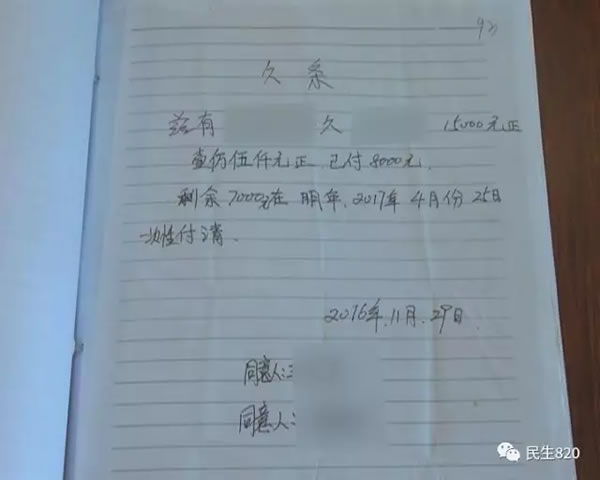 久条
兹有 久 15000元正
壹仿伍仟元正 已付8000元.
剩余7000元在 明年.2017年 4月份 25日
一次性付清.
2016年.11月.29日.
同意人:
同意人:
民生820